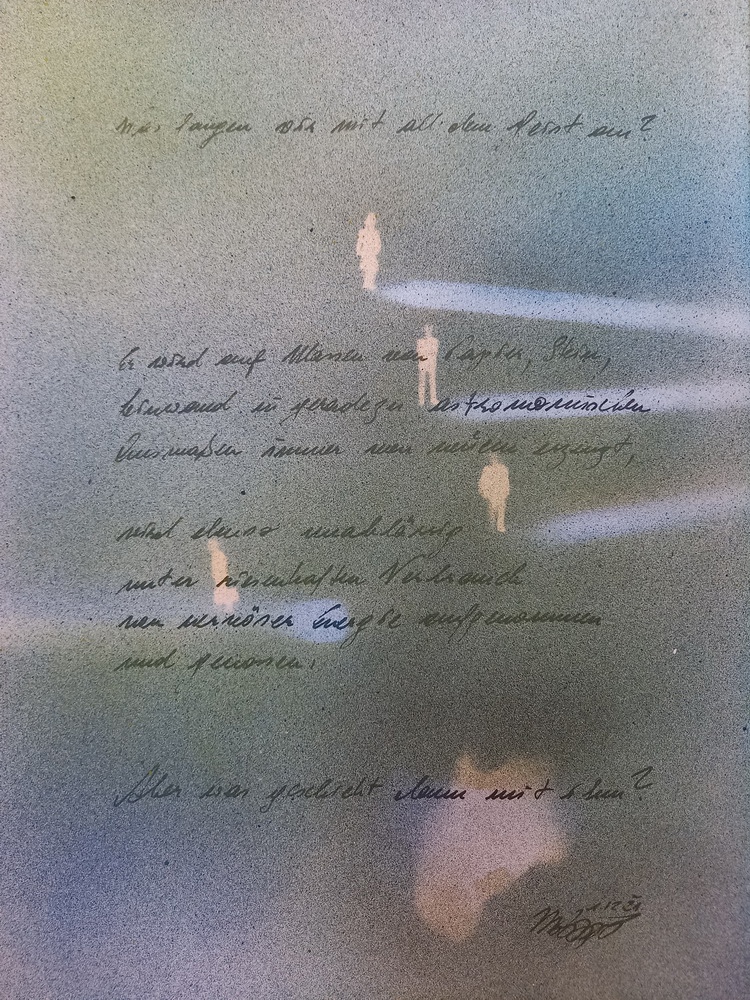 Was fangen wir mit all dem Geist an?
Er wird auf Massen von Papier, Stein,
Leinwand in geradezu astronomischen
Ausmaßen immer von neuem erzeugt,
wird ebenso unablässig
unter riesenhaften Verbrauch
von nervöser Energie aufgenommen
und genossen.
Aber was geschieht dann mit ihm?